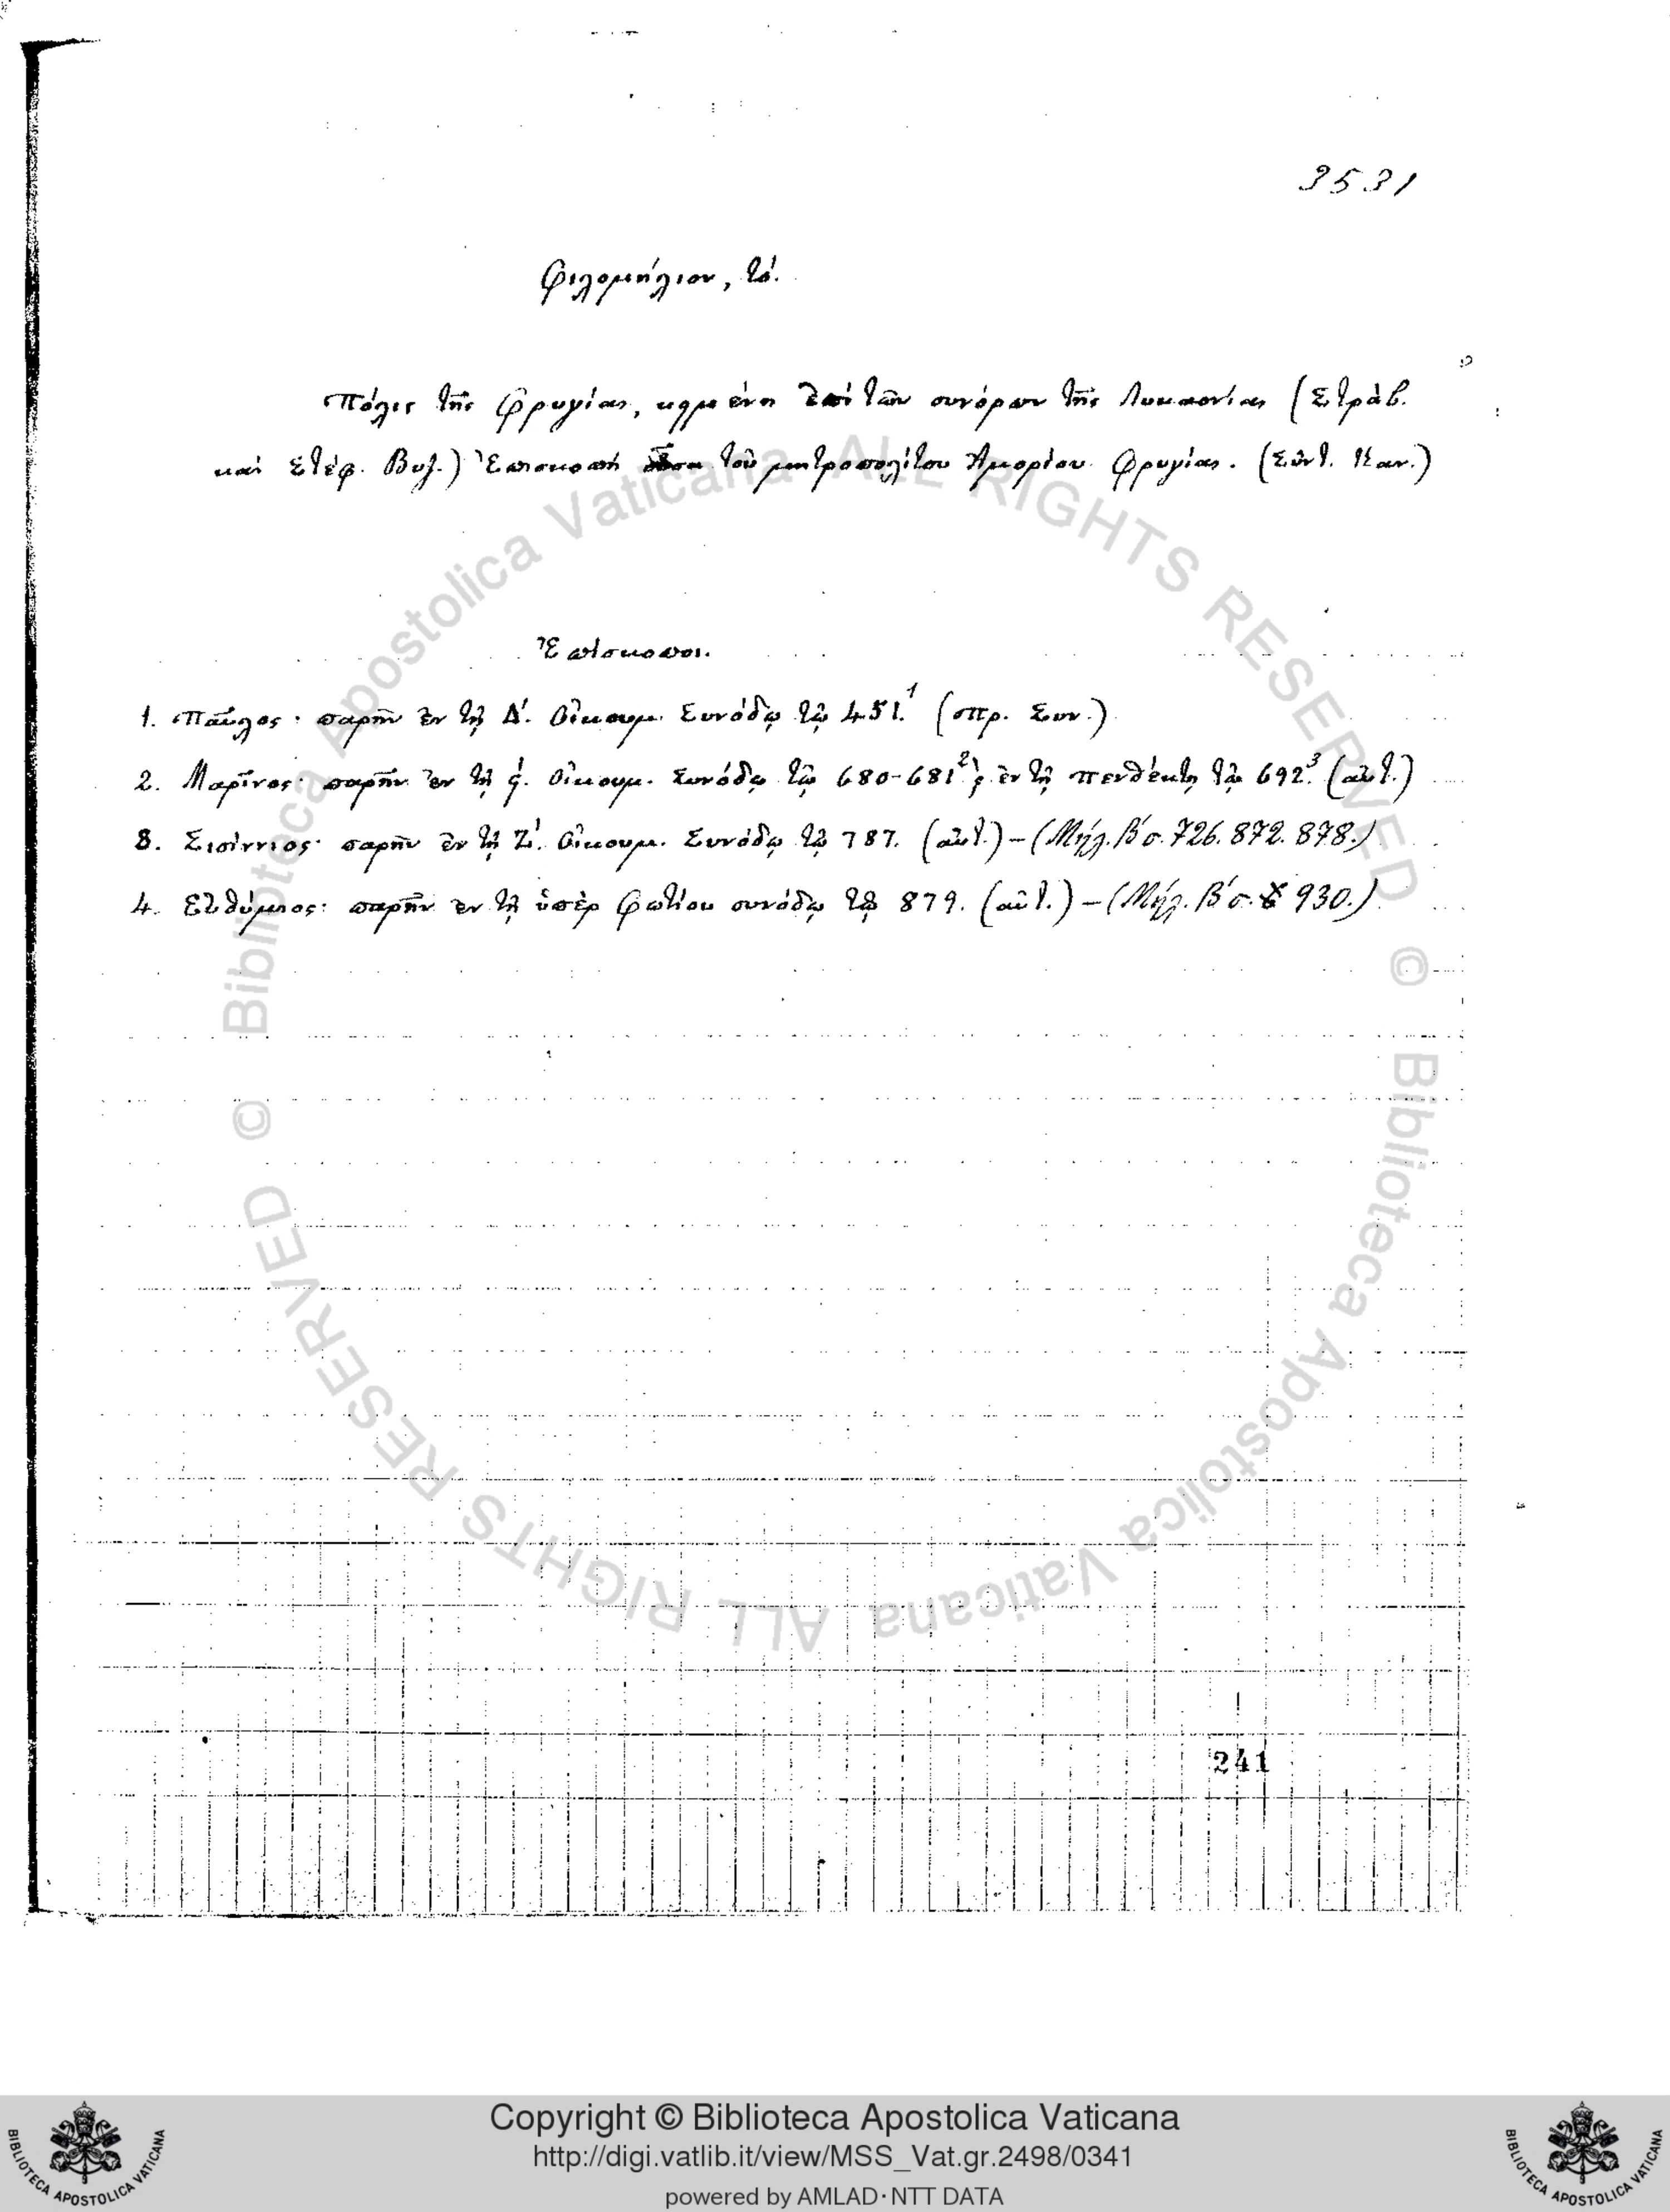 3531
Φιλομήλιον, τό.
Πόλις τῆς Φρυγίας, κειμένη ἐπὶ τῶν συνόρων τῆς Λυκαονίας (Στράβ.
καὶ Στέφ. Βυζ.) Ἐπισκοπή τοῦ μητροπολίτου Ἀμορίου Φρυγίας. (Σύντ. Καν.)
Ἐπίσκοποι.
1. Παῦλος· παρῆν ἐν τῇ Δ'. Οἰκουμ. Συνόδῳ τῷ 451.¹ (πρ. Συν.)
2. Μαρῖνος· παρῆν ἐν τῇ ϛ'. Οἰκουμ. Συνόδῳ τῷ 680-681² ϗ ἐν τῇ πενθέκτῃ τῷ 692.³ (αὐτ.)
3. Σισίννιος· παρῆν ἐν τῇ Ζ'. Οἰκουμ. Συνόδῳ τῷ 787. (αὐτ.) – (Μήλ. Β' σ. 726. 872. 878.)
4. Εὐθύμιος: παρῆν ἐν τῇ ὑπὲρ Φωτίου συνόδῳ τῷ 879. (αὐτ.) – (Μήλ. Β' σ. 930.)
241
Biblioteca Apostolica Vaticana ALL RIGHTS RESERVED ©
Biblioteca Apostolica Vaticana ALL RIGHTS RESERVED ©
Copyright © Biblioteca Apostolica Vaticana
http://digi.vatlib.it/view/MSS_Vat.gr.2498/0341
powered by AMLAD·NTT DATA
BIBLIOTECA APOSTOLICA VATICANA
BIBLIOTECA APOSTOLICA VATICANA